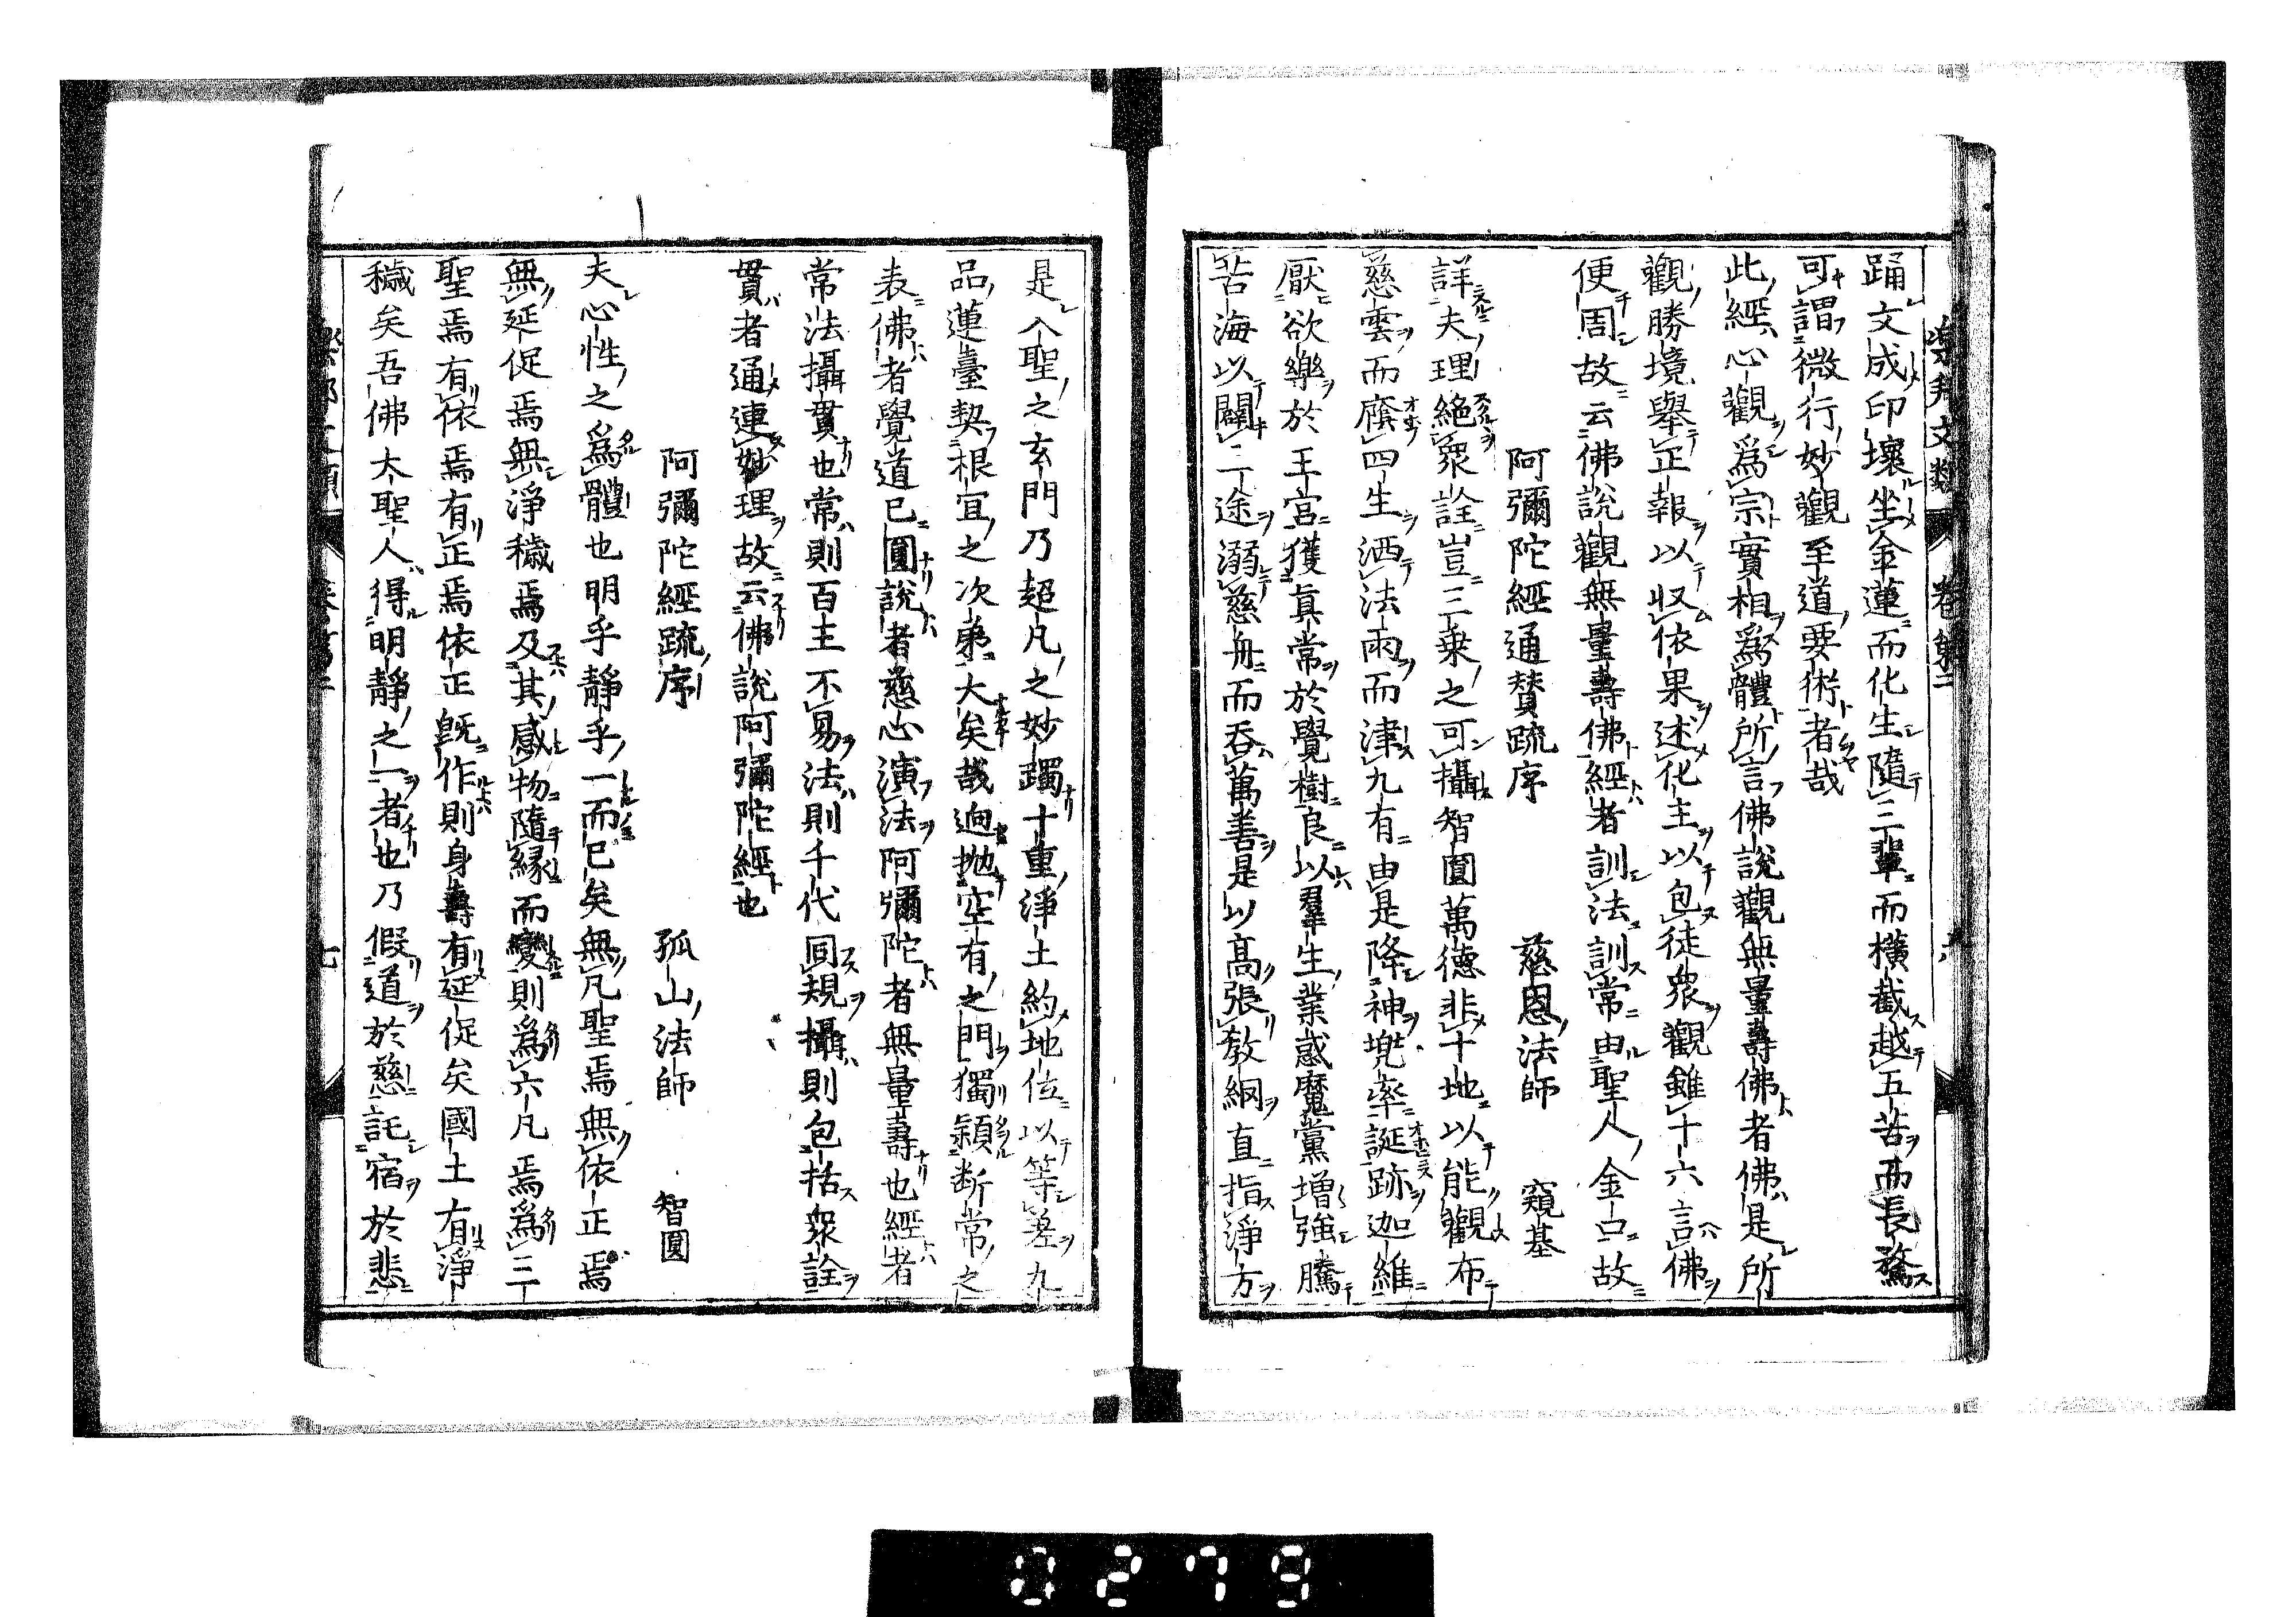 踊文成印壞坐金蓮而化生隨三輩而橫截越五苦而長騖
可謂微行妙觀至道要術者哉
此經心觀爲宗實相爲體所言佛說觀無量壽佛者佛是所
觀勝境舉正報以收依果述化主以包徒衆觀雖十六言佛
便周故云佛說觀無量壽佛經者訓法訓常由聖人金口故
阿彌陀經通賛䟽序 慈恩法師 窺基
詳夫理絕衆詮豈三乗之可攝智圓萬德非十地以能觀布
慈雲而廕四生洒法雨而津九有由是降神兠率誕跡迦維
厭欲樂於王宮獲眞常於覺樹良以羣生業惑魔黨増強騰
苦海以闢二途溺慈舟而呑萬善是以高張教網直指淨方
樂邦文類 卷第二
是入聖之玄門乃超凡之妙躅十重淨土約地位以等差九
品蓮臺契根宜之次第大矣哉逈拋空有之門獨頴断常之
表佛者覺道已圓說者慈心演法阿彌陀者無量壽也經者
常法攝貫也常則百王不易法則千代同規攝則包括衆詮
貫者通連妙理故云佛說阿彌陀經也
阿彌陀經䟽序 孤山法師 智圓
夫心性之爲體也明乎靜乎一而已矣無凡聖焉無依正焉
無延促焉無淨穢焉及其感物隨縁而變則爲六凡焉爲三
聖焉有依焉有正焉依正旣作則身壽有延促矣國土有淨
穢矣吾佛大聖人得明靜之一者也乃假道於慈託宿於悲
七
0279